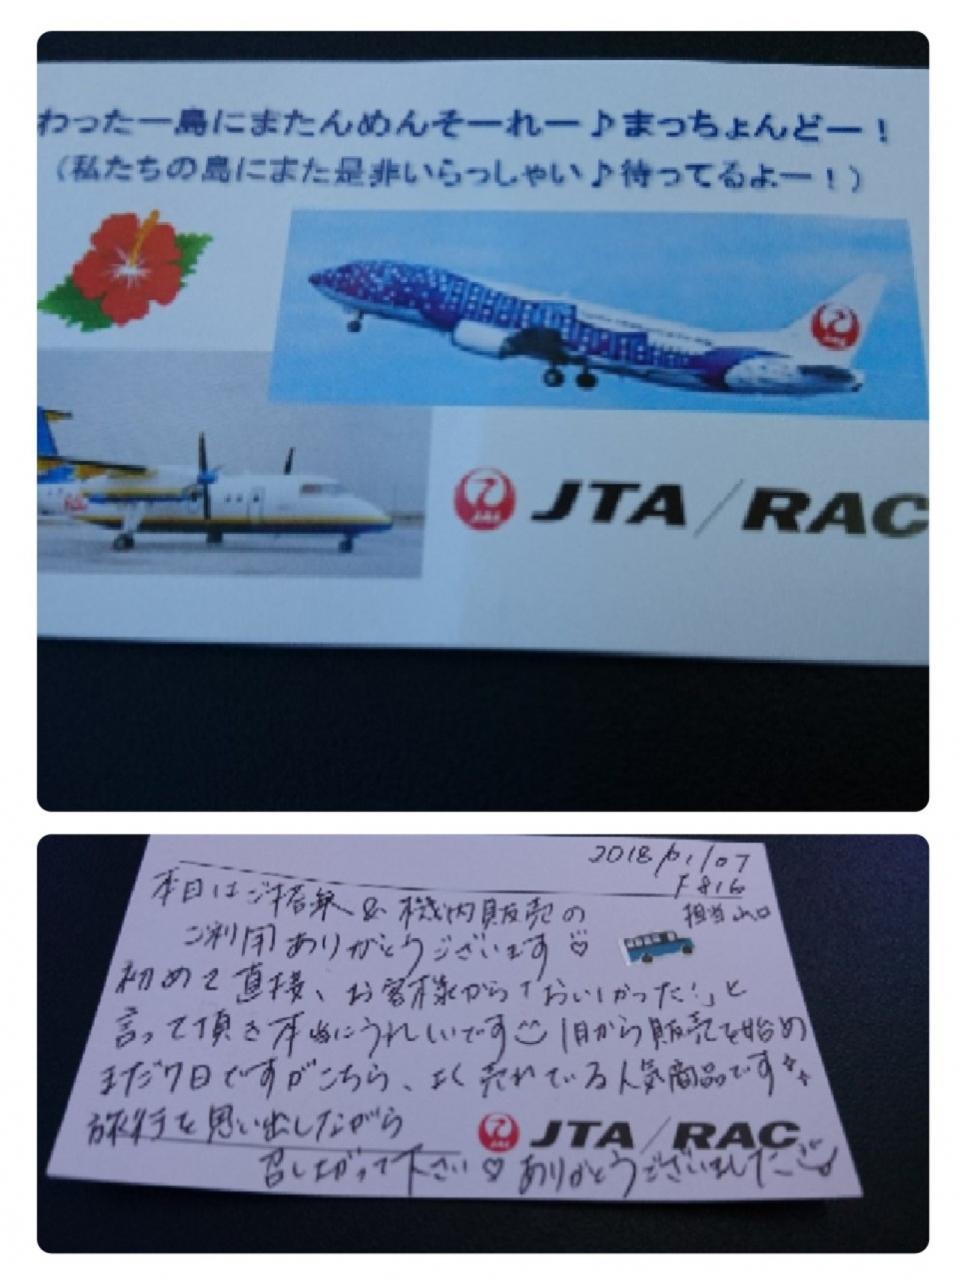 わったー島にまたんめんそーれー♪まっちょんどー！
（私たちの島にまた是非いらっしゃい♪待ってるよー！）
JAL
JAL
JTA/RAC
2018/01/07
F816
担当 山口
本日はご搭乗&機内販売の
ご利用ありがとうございます♡
初めて直接、お客様から「おいしかった！」と
言って頂き本当にうれしいです 1月から販売を始め
まだ7日ですがこちら、よく売れている人気商品です
旅行を思い出しながら
JAL JTA/RAC
召し上がって下さい♡ありがとうございました